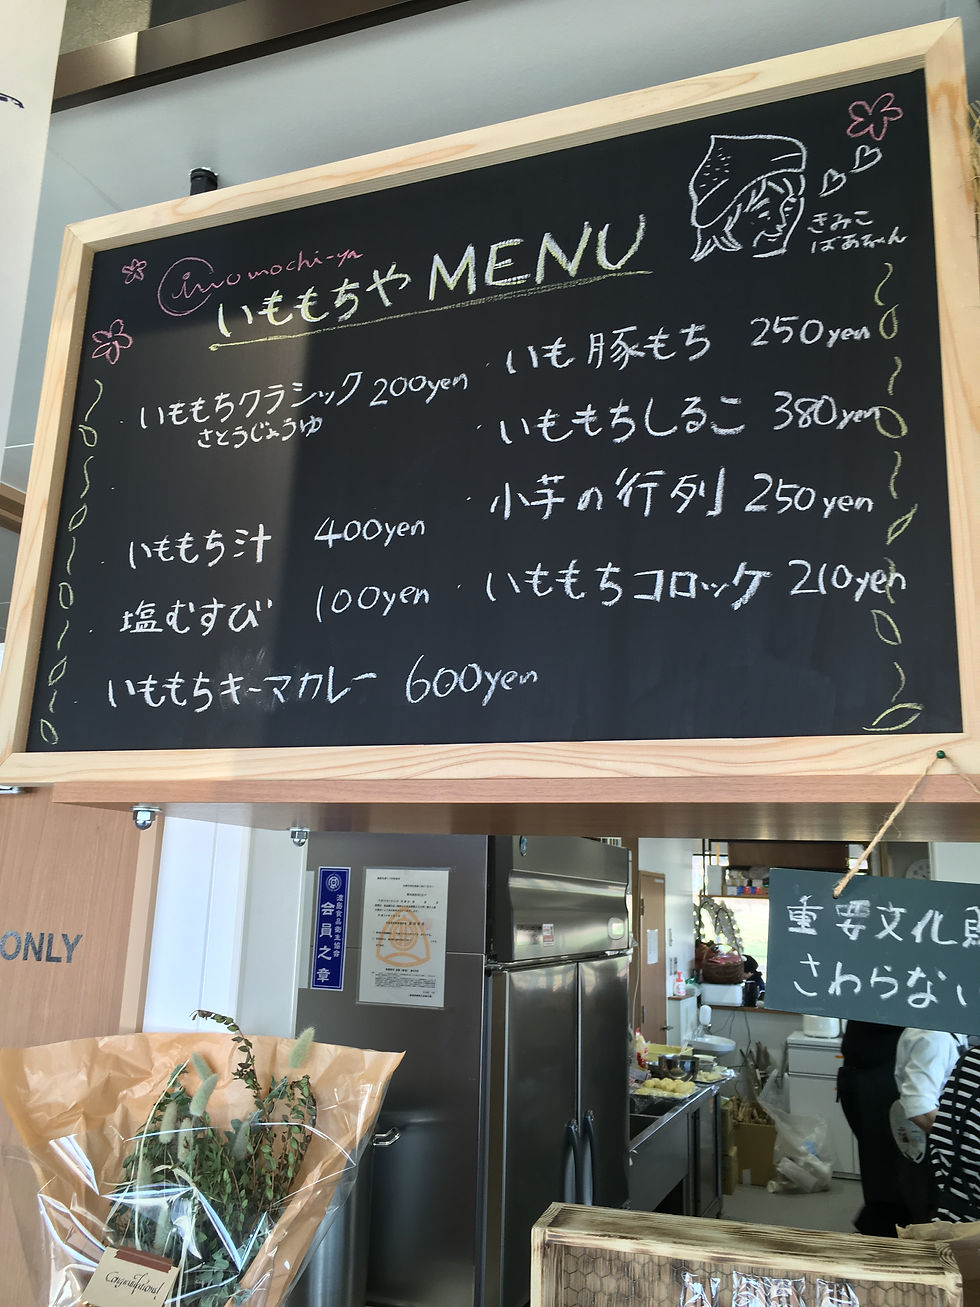 imomochi-ya
いももちや MENU
きみこ
ばあちゃん
・いももちクラシック 200yen
さとうじょうゆ
・いももち汁 400yen
・塩むすび 100yen
・いももちキーマカレー 600yen
・いも豚もち 250yen
・いももちしるこ 380yen
・小芋の行列 250yen
・いももちコロッケ 210yen
ONLY
渡島食品衛生協会
会員之章
重要文化
さわらない
Congratulations!